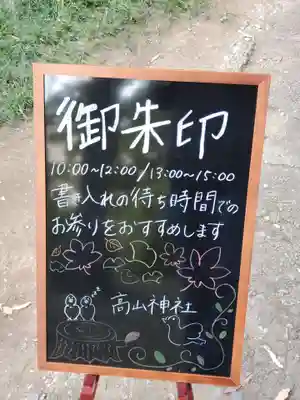 御朱印
10:00～12:00/13:00～15:00
書き入れの待ち時間での
お参りをおすすめします
高山神社